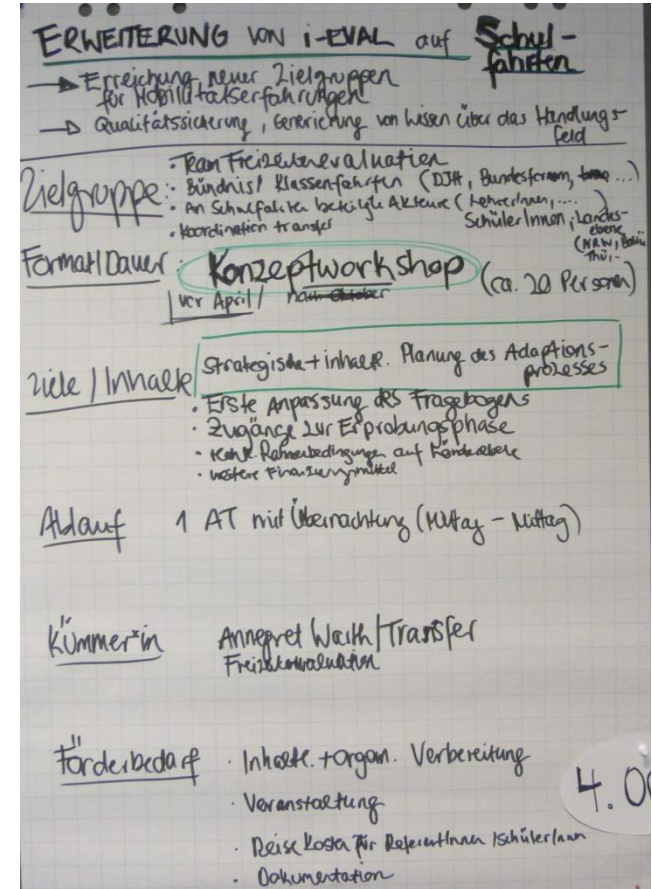 ERWEITERUNG VON i-EVAL auf Schul-
fahrten
→ Erreichung neuer Zielgruppen
für Mobilitätserfahrungen
→ Qualitätssicherung, Generierung von Wissen über das Handlungs-
feld
· Team Freizeitenevaluation
Zielgruppe: · Bündnis/ Klassenfahrten (DJH, Bundesforum, ...)
· An Schulfahrten beteiligte Akteure (LehrerInnen, ....)
SchülerInnen, Landes-
ebene
(NRW, Thü,..
· Koordination transfer
Format/Dauer: Konzeptworkshop (ca. 20 Personen)
| vor April / nach Oktober
Ziele / Inhalte Strategische + inhaltl. Planung des Adaptions-
prozesses
· Erste Anpassung des Fragebogens
· Zugänge zur Erprobungsphase
· Rahmenbedingungen auf Länderebene
· weitere Finanzierungsmittel
Ablauf 1 AT mit Übernachtung (Mittag – Mittag)
Kümmer*in Annegret / Transfer
Freizeitenevaluation
Förderbedarf · Inhaltl. + organ. Vorbereitung
· Veranstaltung
4.00
· Reisekosten für ReferentInnen / SchülerInnen
· Dokumentation